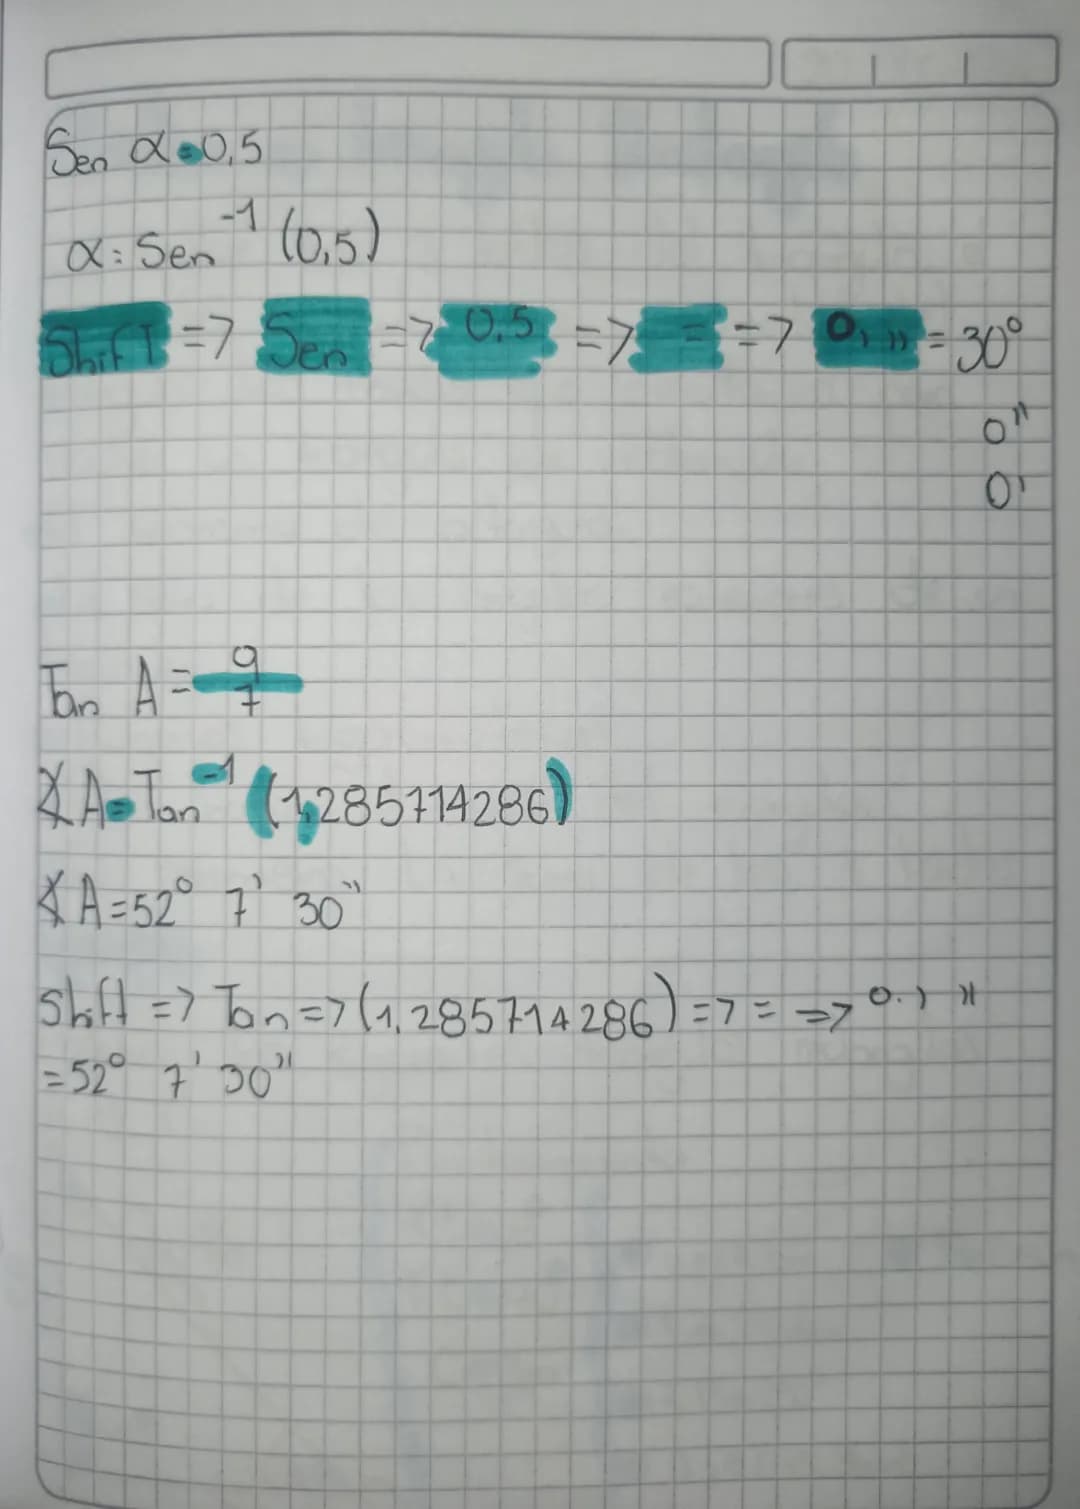 Sen α=0,5
α: Sen⁻¹ (0,5)
Shift => Sen => 0,5 => = => 0,,, = 30°
0''
0'
Tan A = 9/7
∡A=Tan⁻¹ (1,285714286)
∡A=52° 7' 30''
Shift => Tan => (1,285714286) => = => o.,,,
=52° 7' 30''